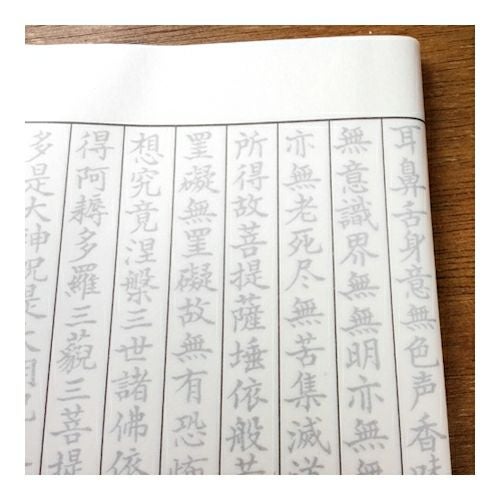 耳鼻舌身意無色声香味
無意識界無無明亦無
亦無老死尽無苦集滅道
所得故菩提薩埵依般若
罣礙無罣礙故無有恐怖
想究竟涅槃三世諸佛依
得阿耨多羅三藐三菩提
多是大神呪是大明呪